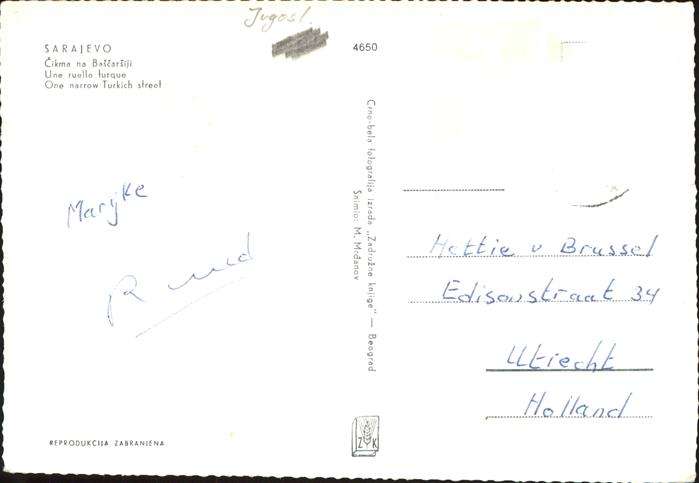 Jugosl.
SARAJEVO
Čikma na Baščaršiji
Une ruelle turque
One narrow Turkich street
4650
Crno-bela fotografija izrada „Zadružna knjiga" — Beograd
Snimio: M. Mrđanov
Marijke
Ruud
Hettie v Brussel
Edisonstraat 34
Utrecht
Holland
REPRODUKCIJA ZABRANJENA
Z K